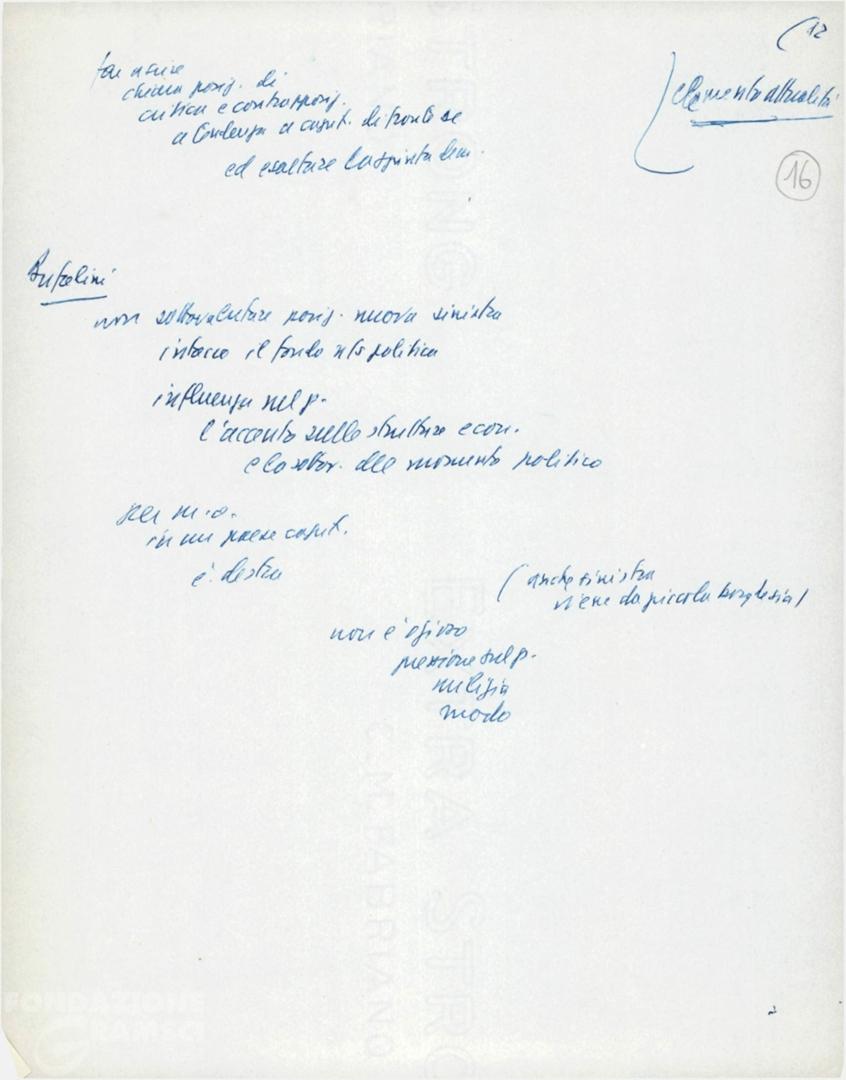 (12
far uscire
chiara posiz. di
critica e contrapposiz.
a tendenza a capit. di fronte se
ed esaltare la spinta dem.
elemento attualità
16
non sottovalutare posiz. nuova sinistra
intacca il fondo politica
influenza nel p.
l'accento sulle strutture econ.
e la sottov. del momento politico
per m.o.
in un paese capit.
è destra
(anche sinistra
viene da piccola borghesia)
non è ozioso
pressione sul p.
milizia
modo
FONDAZIONE
GRAMSCI
EXTRA STRONG
C.M. FABRIANO